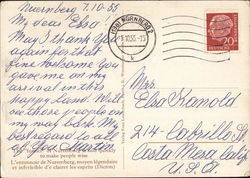 Nuernberg 7.10.55
My dear Elsa!
May I thank you
again for that
fine welcome you
gave me on my
arrival in this
happy land. Will
see there people on
my way back. My
best regard to all
of you. Martin
to make people wise
L'entonnoir de Nuremberg, moyen légendaire
et infaillible d'éclairer les esprits (Dicton)
NÜRNBERG 2
.10.55.-15
k
DEUTSCHE BUNDESPOST
20
Mrs.
Elsa Kanold
214- Cabrillo St
Costa Mesa Calif
U.S.A.